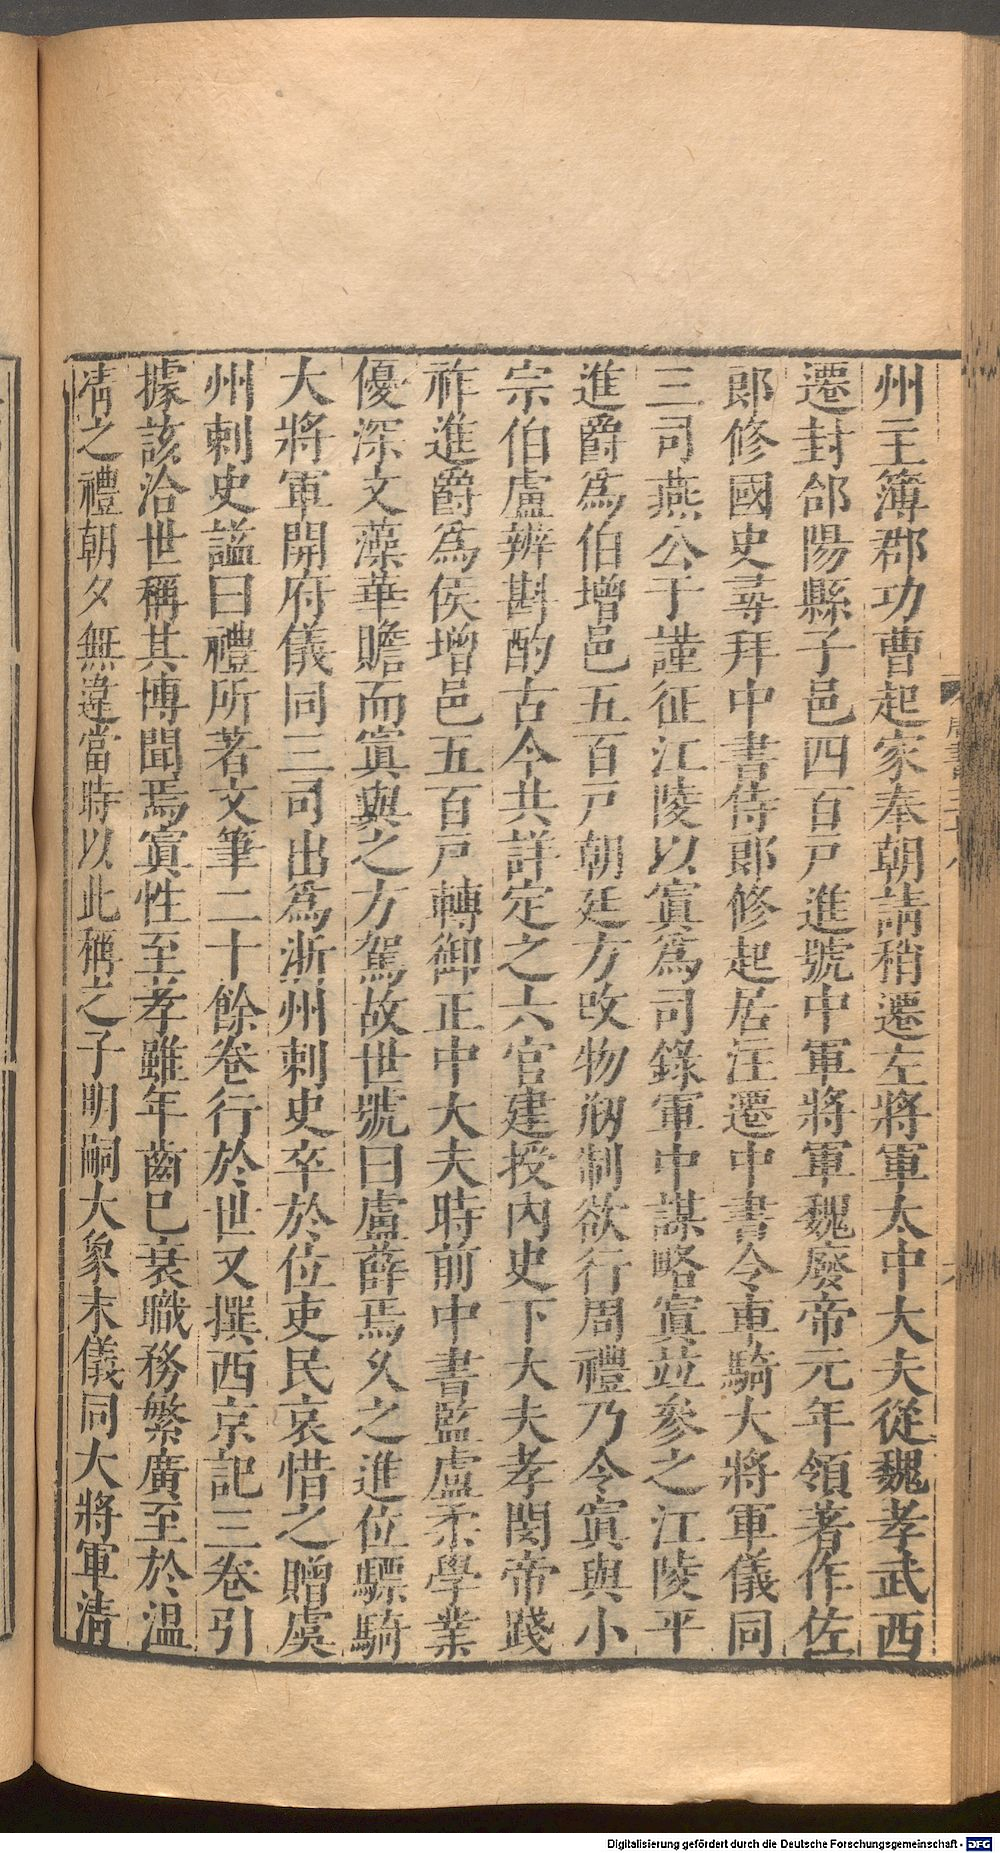 州主簿郡功曹起家奉朝請稍遷左將軍太中大夫從魏孝武西
遷封郃陽縣子邑四百戸進號中軍將軍魏廢帝元年領著作佐
郎修國史尋拜中書侍郎修起居注遷中書令車騎大將軍儀同
三司燕公于謹征江陵以寘爲司錄軍中謀略寘並參之江陵平
進爵爲伯增邑五百戸朝廷方改物刱制欲行周禮乃令寘與小
宗伯盧辨斟酌古今共詳定之六官建授內史下大夫孝閔帝踐
祚進爵爲侯增邑五百戸轉御正中大夫時前中書監盧柔學業
優深文藻華贍而寘與之方駕故世號曰盧薛焉久之進位驃騎
大將軍開府儀同三司出爲淅州刺史卒於位吏民哀惜之贈虞
州刺史謚曰禮所著文筆二十餘卷行於世又撰西京記三卷引
據該洽世稱其博聞焉寘性至孝雖年齒巳衰職務繁廣至於溫
凊之禮朝夕無違當時以此稱之子明嗣大象末儀同大將軍清
Digitalisierung gefördert durch die Deutsche Forschungsgemeinschaft - DFG